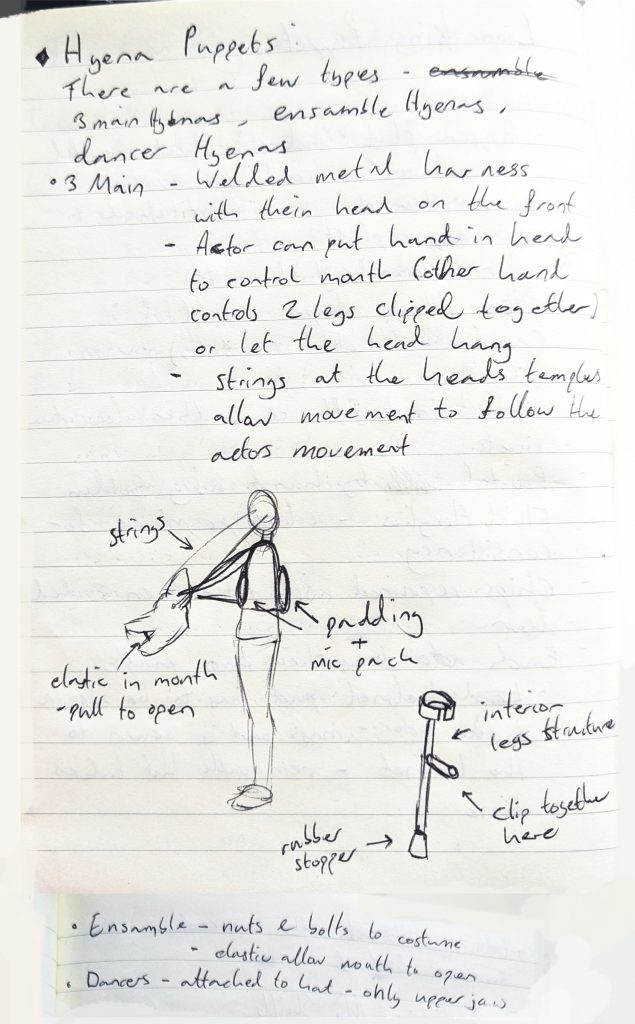 Hyena Puppets
There are a few types - ensamble
3 main Hyenas, ensamble Hyenas,
dancer Hyenas
• 3 Main - Welded metal harness
with their head on the front
- Actor can put hand in head
to control mouth (other hand
controls 2 legs clipped together)
or let the head hang
- strings at the heads temples
allow movement to follow the
actors movement
strings
padding
+
mic pack
elastic in mouth
- pull to open
interior
legs structure
clip together
here
rubber
stopper
• Ensamble - nuts & bolts to costume
- elastic allow mouth to open
• Dancers - attached to hat - only upper jaw